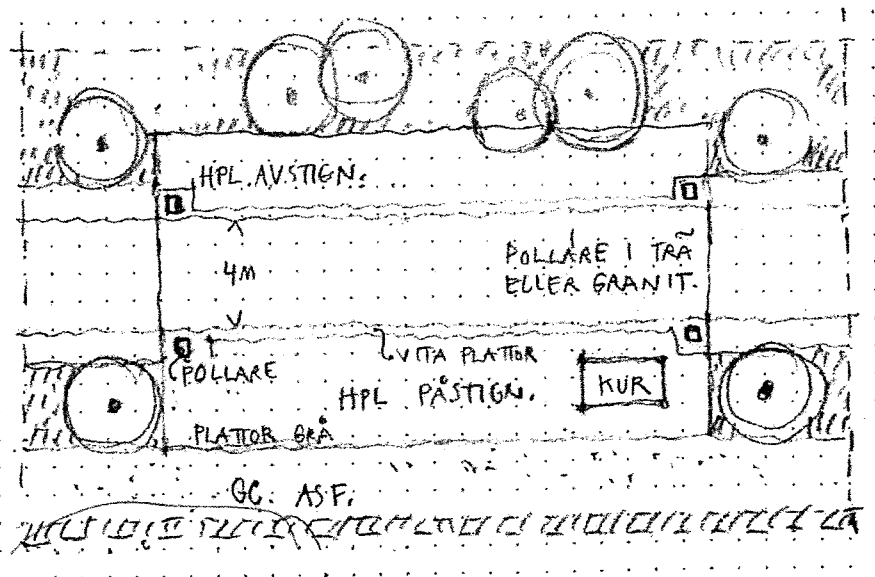 HPL. AVSTIGN.
4M
POLLARE I TRÄ
ELLER GRANIT.
VITA PLATTOR
POLLARE
HPL PÅSTIGN.
KUR
PLATTOR GRÅ
GC. ASF.